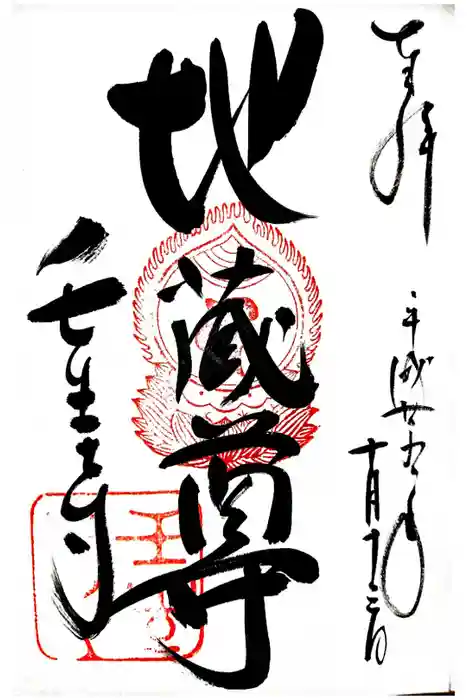 奉拝
平成廿九年
十月十三日
地蔵尊
壬生寺